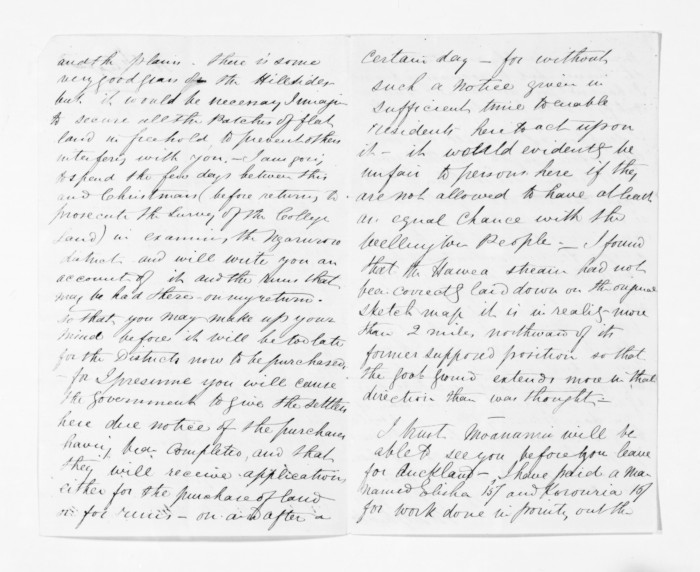 and the plain. there is some
very good grass on the Hillsides
but it would be necessary I imagine
to secure all the Patches of flat
land in freehold, to prevent others
interfering with you. – I am going
to spend the few days between this
and Christmas (before returning to
prosecute the Survey of the College
Land) in examining the Ngaruroro
district and will write you an
account of it and the runs that
may be had there – on my return.
so that you may make up your
mind before it will be too late
for the Districts now to be purchased
– for I presume you will cause
the Government to give the settlers
here due notice of the purchases
having been completed, and that
they will receive applications
either for the purchase of land
or for runs – on and after a
certain day – for without
such a notice given in
sufficient time to enable
residents here to act upon
it – it would evidently be
unfair to persons here if they
are not allowed to have at least
an equal chance with the
Wellington People – I found
that the Hawea stream had not
been correctly laid down on the original
sketch map it is in reality more
than 2 miles northward of its
former supposed position so that
the good ground extends more in that
direction than was thought –
I trust Moananui will be
able to see you before you leave
for Auckland –, I have paid a man
named Elisha 15/ and Korouria 15/
for work done in pointing out the